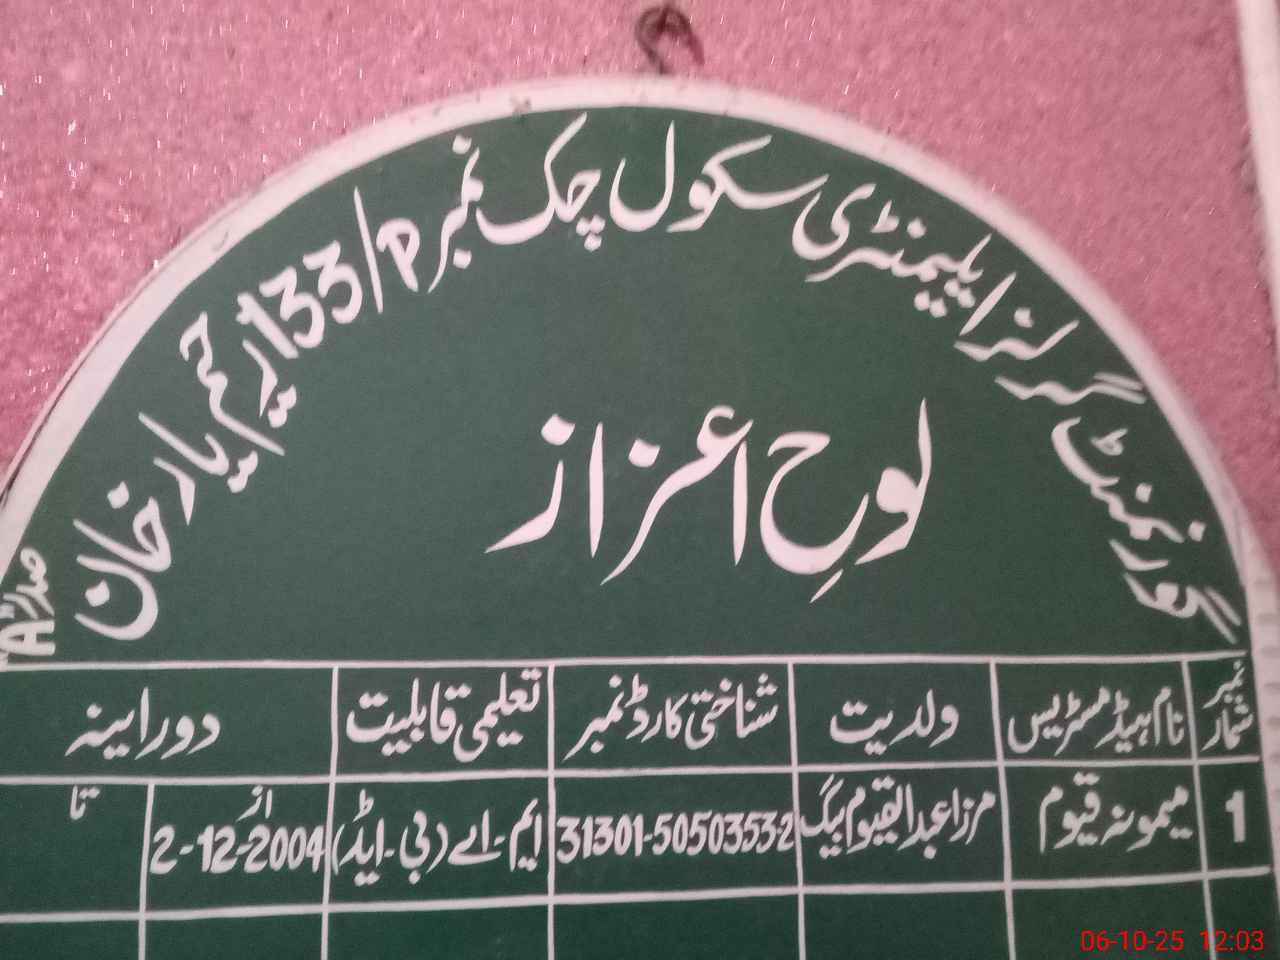 گورنمنٹ گرلز ایلیمنٹری سکول چک نمبر 133/P رحیم یار خان
صدر A
لوحِ اعزاز
نمبر شمار نام ہیڈ مسٹریس ولدیت شناختی کارڈ نمبر تعلیمی قابلیت دورانیہ
از تا
1 میمونہ قیوم مرزا عبدالقیوم بیگ 31301-5050353-2 ایم-اے (بی-ایڈ) 2-12-2004
06-10-25 12:03